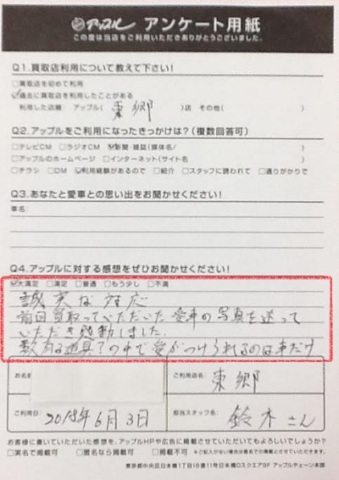 アップル アンケート用紙
この度は当店をご利用いただきありがとうございました。
Q1.買取店利用について教えて下さい!
□買取店を初めて利用
☑過去に買取店を利用したことがある
利用した店舗 アップル( 東郷 )店 その他( )
Q2.アップルをご利用になったきっかけは?(複数回答可)
□テレビCM □ラジオCM ☑新聞・雑誌(媒体名/ )
□アップルのホームページ □インターネット(サイト名 )
□チラシ □DM ☑利用経験があるので □紹介 □スタッフに誘われて □通りがかりで
Q3.あなたと愛車との思い出をお聞かせください!
車名
Q4.アップルに対する感想をぜひお聞かせください!
☑大満足 □満足 □普通 □もう少し □不満
誠実な対応
前回買取っていただいた愛車の写真を送って
いただき感動しました。
数有る道具?の中で愛がつけられるのは車だけ
お名前
ご利用店名: 東郷
ご利用日: 2018年6月3日
担当スタッフ名: 鈴木さん
お客様に書いていただいた感想を、アップルHPや広告に掲載させていただいてもよろしいでしょうか?
□実名で掲載可 □匿名なら掲載可 □掲載不可
東京都中央区日本橋1丁目16番11号日本橋DスクエアB2F アップルチェーン本部